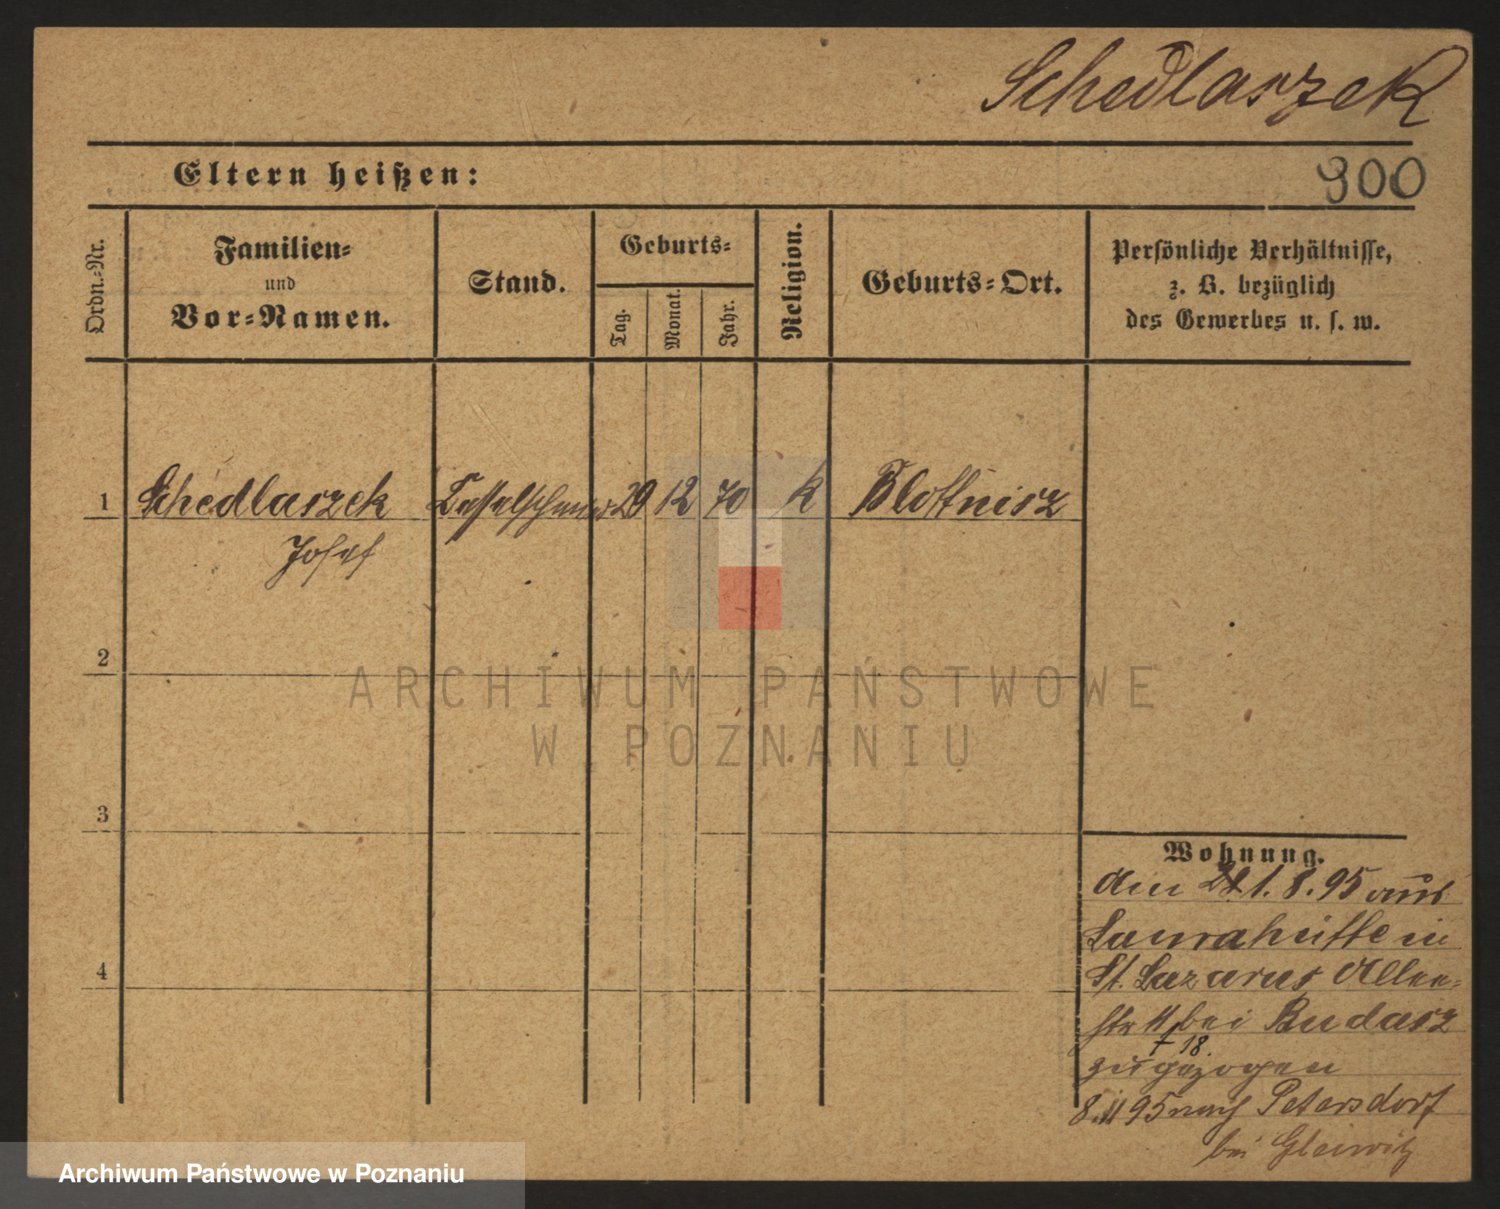 Schedlaszek
Eltern heißen:
900
Ordn.-Nr.
Familien-
und
Vor-Namen.
Stand.
Geburts-
Tag.
Monat.
Jahr.
Religion.
Geburts-Ort.
Persönliche Verhältnisse,
z. B. bezüglich
des Gewerbes u. s. w.
1 Schedlaszek Kesselschmied 29 12 70 k Blottnisz
Josef
2
ARCHIWUM PAŃSTWOWE
W POZNANIU
3
4
Wohnung.
Am 1.8.95 aus
Laurahütte in
St. Lazarus
bei Budasz
† 18.
zugezogen
8.11 95 nach Petersdorf
bei Gleiwitz
Archiwum Państwowe w Poznaniu